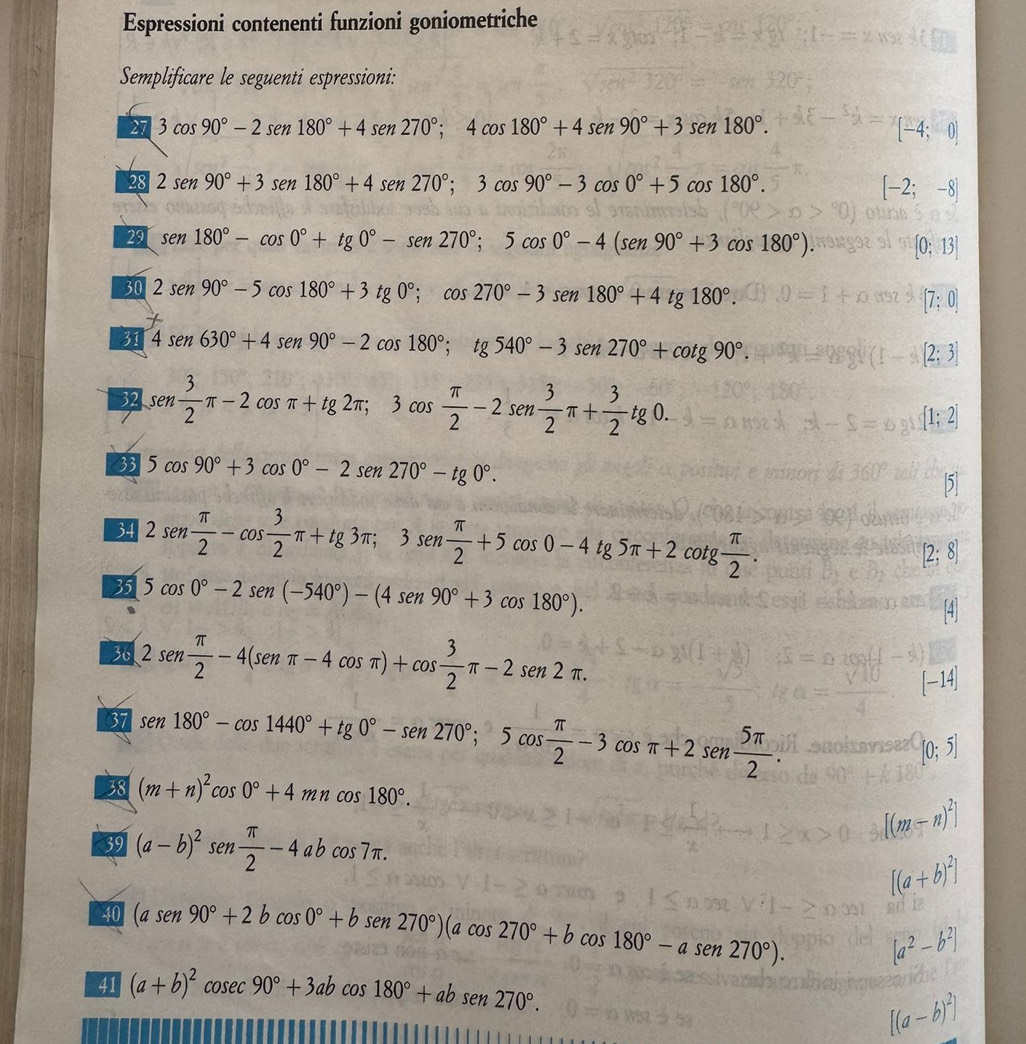 Espressioni contenenti funzioni goniometriche
Semplificare le seguenti espressioni:
27 3 cos 90° − 2 sen 180° + 4 sen 270°; 4 cos 180° + 4 sen 90° + 3 sen 180°. [−4; 0]
28 2 sen 90° + 3 sen 180° + 4 sen 270°; 3 cos 90° − 3 cos 0° + 5 cos 180°. [−2; −8]
29 sen 180° − cos 0° + tg 0° − sen 270°; 5 cos 0° − 4 (sen 90° + 3 cos 180°). [0; 13]
30 2 sen 90° − 5 cos 180° + 3 tg 0°; cos 270° − 3 sen 180° + 4 tg 180°. [7; 0]
31 4 sen 630° + 4 sen 90° − 2 cos 180°; tg 540° − 3 sen 270° + cotg 90°. [2; 3]
32 sen 3/2 π − 2 cos π + tg 2π; 3 cos π/2 − 2 sen 3/2 π + 3/2 tg 0. [1; 2]
33 5 cos 90° + 3 cos 0° − 2 sen 270° − tg 0°. [5]
34 2 sen π/2 − cos 3/2 π + tg 3π; 3 sen π/2 + 5 cos 0 − 4 tg 5π + 2 cotg π/2. [2; 8]
35 5 cos 0° − 2 sen (−540°) − (4 sen 90° + 3 cos 180°). [4]
36 2 sen π/2 − 4(sen π − 4 cos π) + cos 3/2 π − 2 sen 2 π. [−14]
37 sen 180° − cos 1440° + tg 0° − sen 270°; 5 cos π/2 − 3 cos π + 2 sen 5π/2. [0; 5]
38 (m + n)² cos 0° + 4 mn cos 180°. [(m − n)²]
39 (a − b)² sen π/2 − 4 ab cos 7π. [(a + b)²]
40 (a sen 90° + 2 b cos 0° + b sen 270°)(a cos 270° + b cos 180° − a sen 270°). [a² − b²]
41 (a + b)² cosec 90° + 3ab cos 180° + ab sen 270°. [(a − b)²]